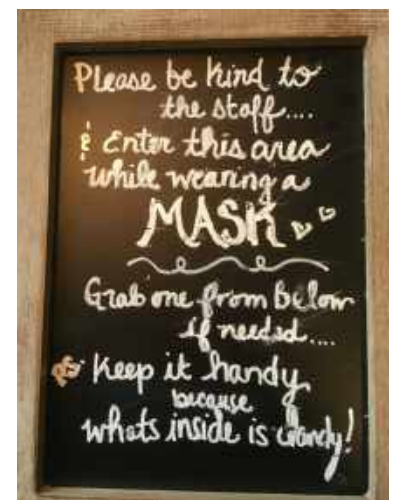 Please be kind to
the staff....
& Enter this area
while wearing a
MASK
Grab one from Below
if needed....
PS Keep it handy
because
whats inside is dandy!